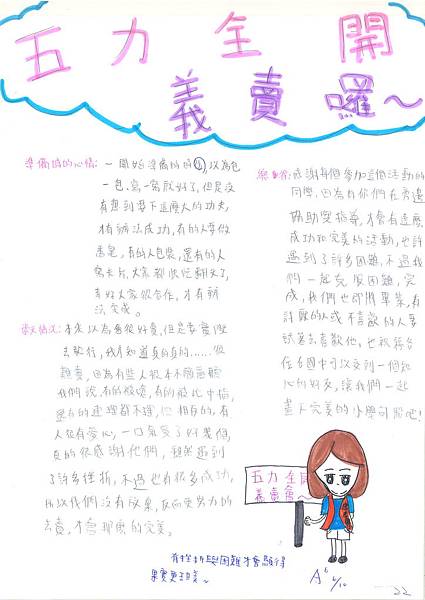 五力全開
義賣囉～
準備時的心情：一開始準備的時候，以為包
一包、寫一寫就好了，但是沒
有想到要下這麼大的功夫，
才有辦法成功，有的人要做
有的人包裝，還有的人
寫卡片，大家都快忙翻天了，
幸好大家很合作，才有辦
法完成。
本來以為會很好賣，但是當實際
去執行，我才知道真的真的……很
難賣，因為有些人根本不願意聽
我們說，有的
還有的連理都不理，但相反的，有
人很有愛心，一口氣買了好幾個，
真的很感謝他們，雖然遇到
了許多挫折，不過也有很多成功，
所以我們沒有放棄，反而更努力的
去賣，才會那麼的完美。
感謝每個參加這個活動的
同學，因為有你們在旁邊
協助與指導，才會有這麼
成功和完美的活動，也許
遇到了許多困難，不過我
們一起克服困難，完
成，我們也即將畢業，有
討厭的人或不喜歡的人要
試著去喜歡他，也祝福各
位在國中可以交到一個知
心的好友，讓我們一起
畫下完美的小學句點吧！
五力全開
義賣會～
有挫折與困難才會顯得
果實更甜美～
A 6/10
22